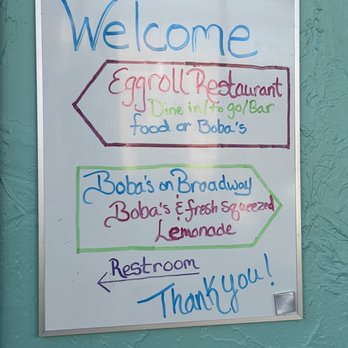 Welcome
Eggroll Restaurant
Dine in/To go/Bar
food or Boba's
Boba's on Broadway
Boba's & fresh squeezed
Lemonade
Restroom
Thank you!